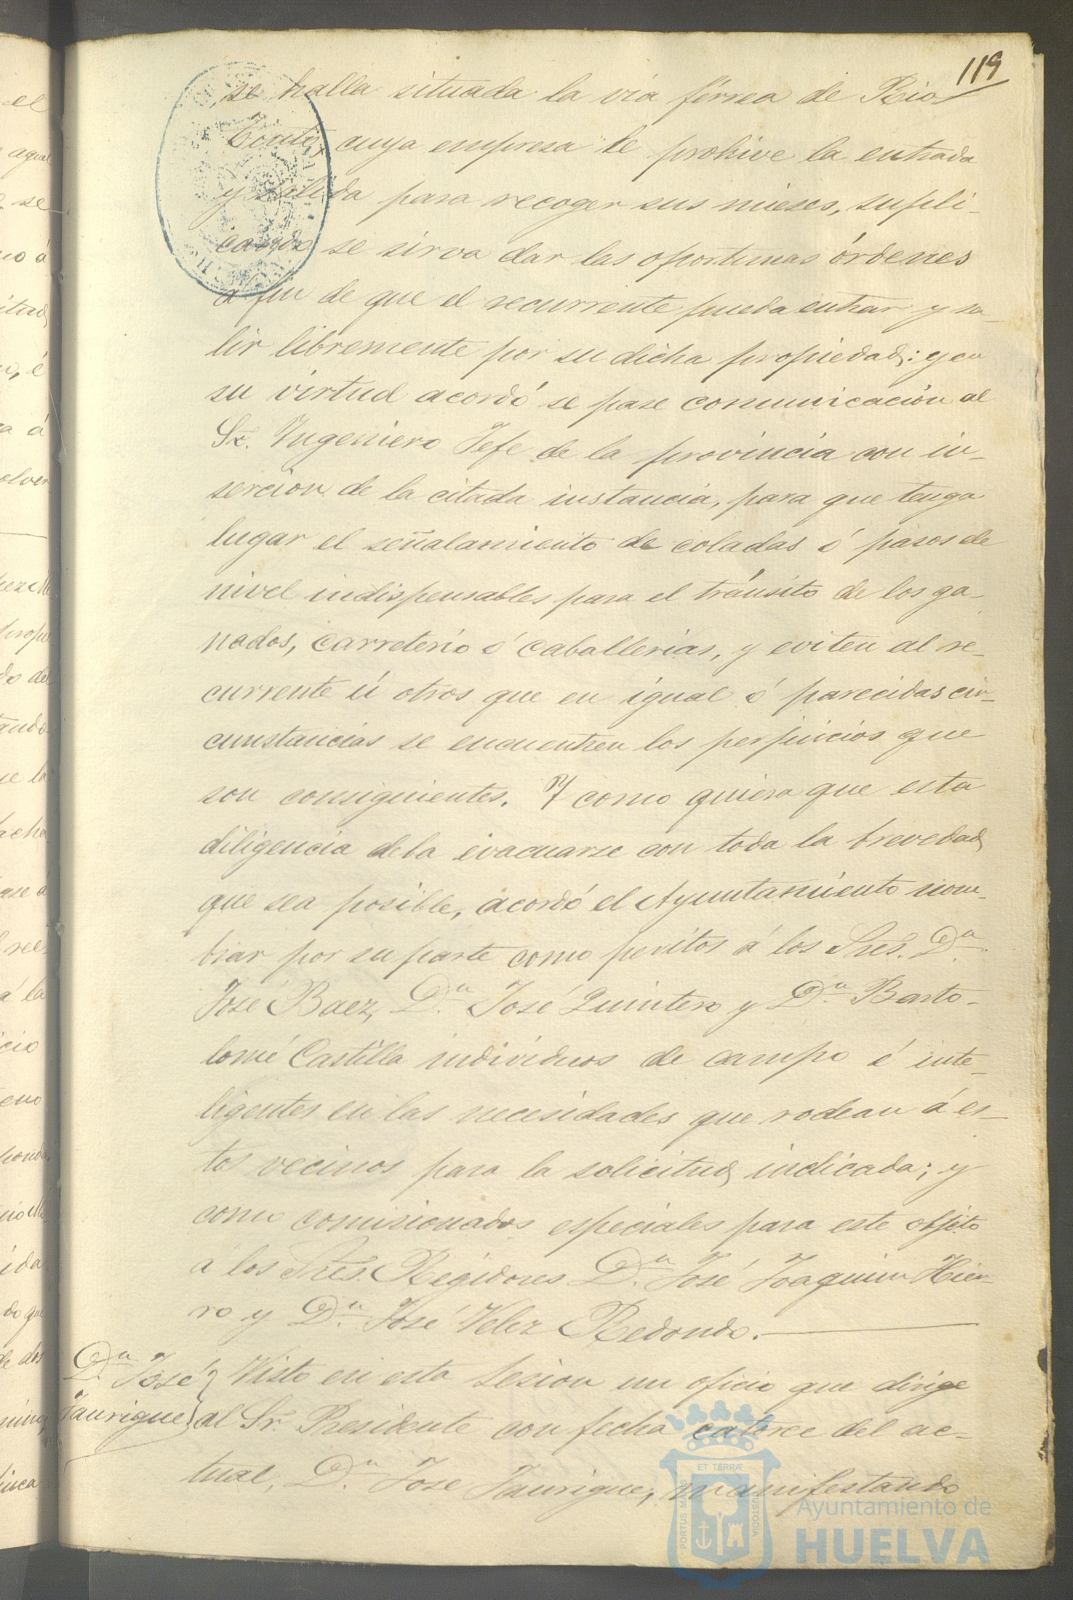 119
se halla situada la via ferrea de Rio
Tinto, cuya empresa le prohive la entrada
y salida para recoger sus mieses, supli-
cando se sirva dar las oportunas órdenes
á fin de que el recurrente pueda entrar y sa-
lir libremente por su dicha propiedad: y en
su virtud acordó se pase comunicación al
Sr. Ingeniero Jefe de la provincia con in-
sercion de la citada instancia, para que tenga
lugar el señalamiento de coladas ó pasos de
nivel indispensables para el tránsito de los ga-
nados, carreterio ó caballerias, y eviten al re-
currente ú otros que en igual ó parecidas cir-
cunstancias se encuentren los perjuicios que
son consiguientes. Y como quiera que esta
diligencia deba evacuarse con toda la brevedad
que sea posible, acordó el Ayuntamiento nom-
brar por su parte como peritos á los Sres. Dn.
José Baez, Dn. José Quintero y Dn. Barto-
lomé Castilla individuos de campo é inte-
ligentes en las necesidades que rodean á es-
tos vecinos para la solicitud indicada; y
como comisionados especiales para este objeto
á los Sres. Regidores Dn. José Joaquin Hier-
ro y Dn. José Velez Redondo.
Dn. José
Taurigue
Visto en esta Sesion un oficio que dirige
al Sr. Presidente con fecha catorce del ac-
tual, Dn. Jose Taurigue, manifestando
ET TERRÆ
PORTUS MARIS
CUSTODIA
Ayuntamiento de
HUELVA